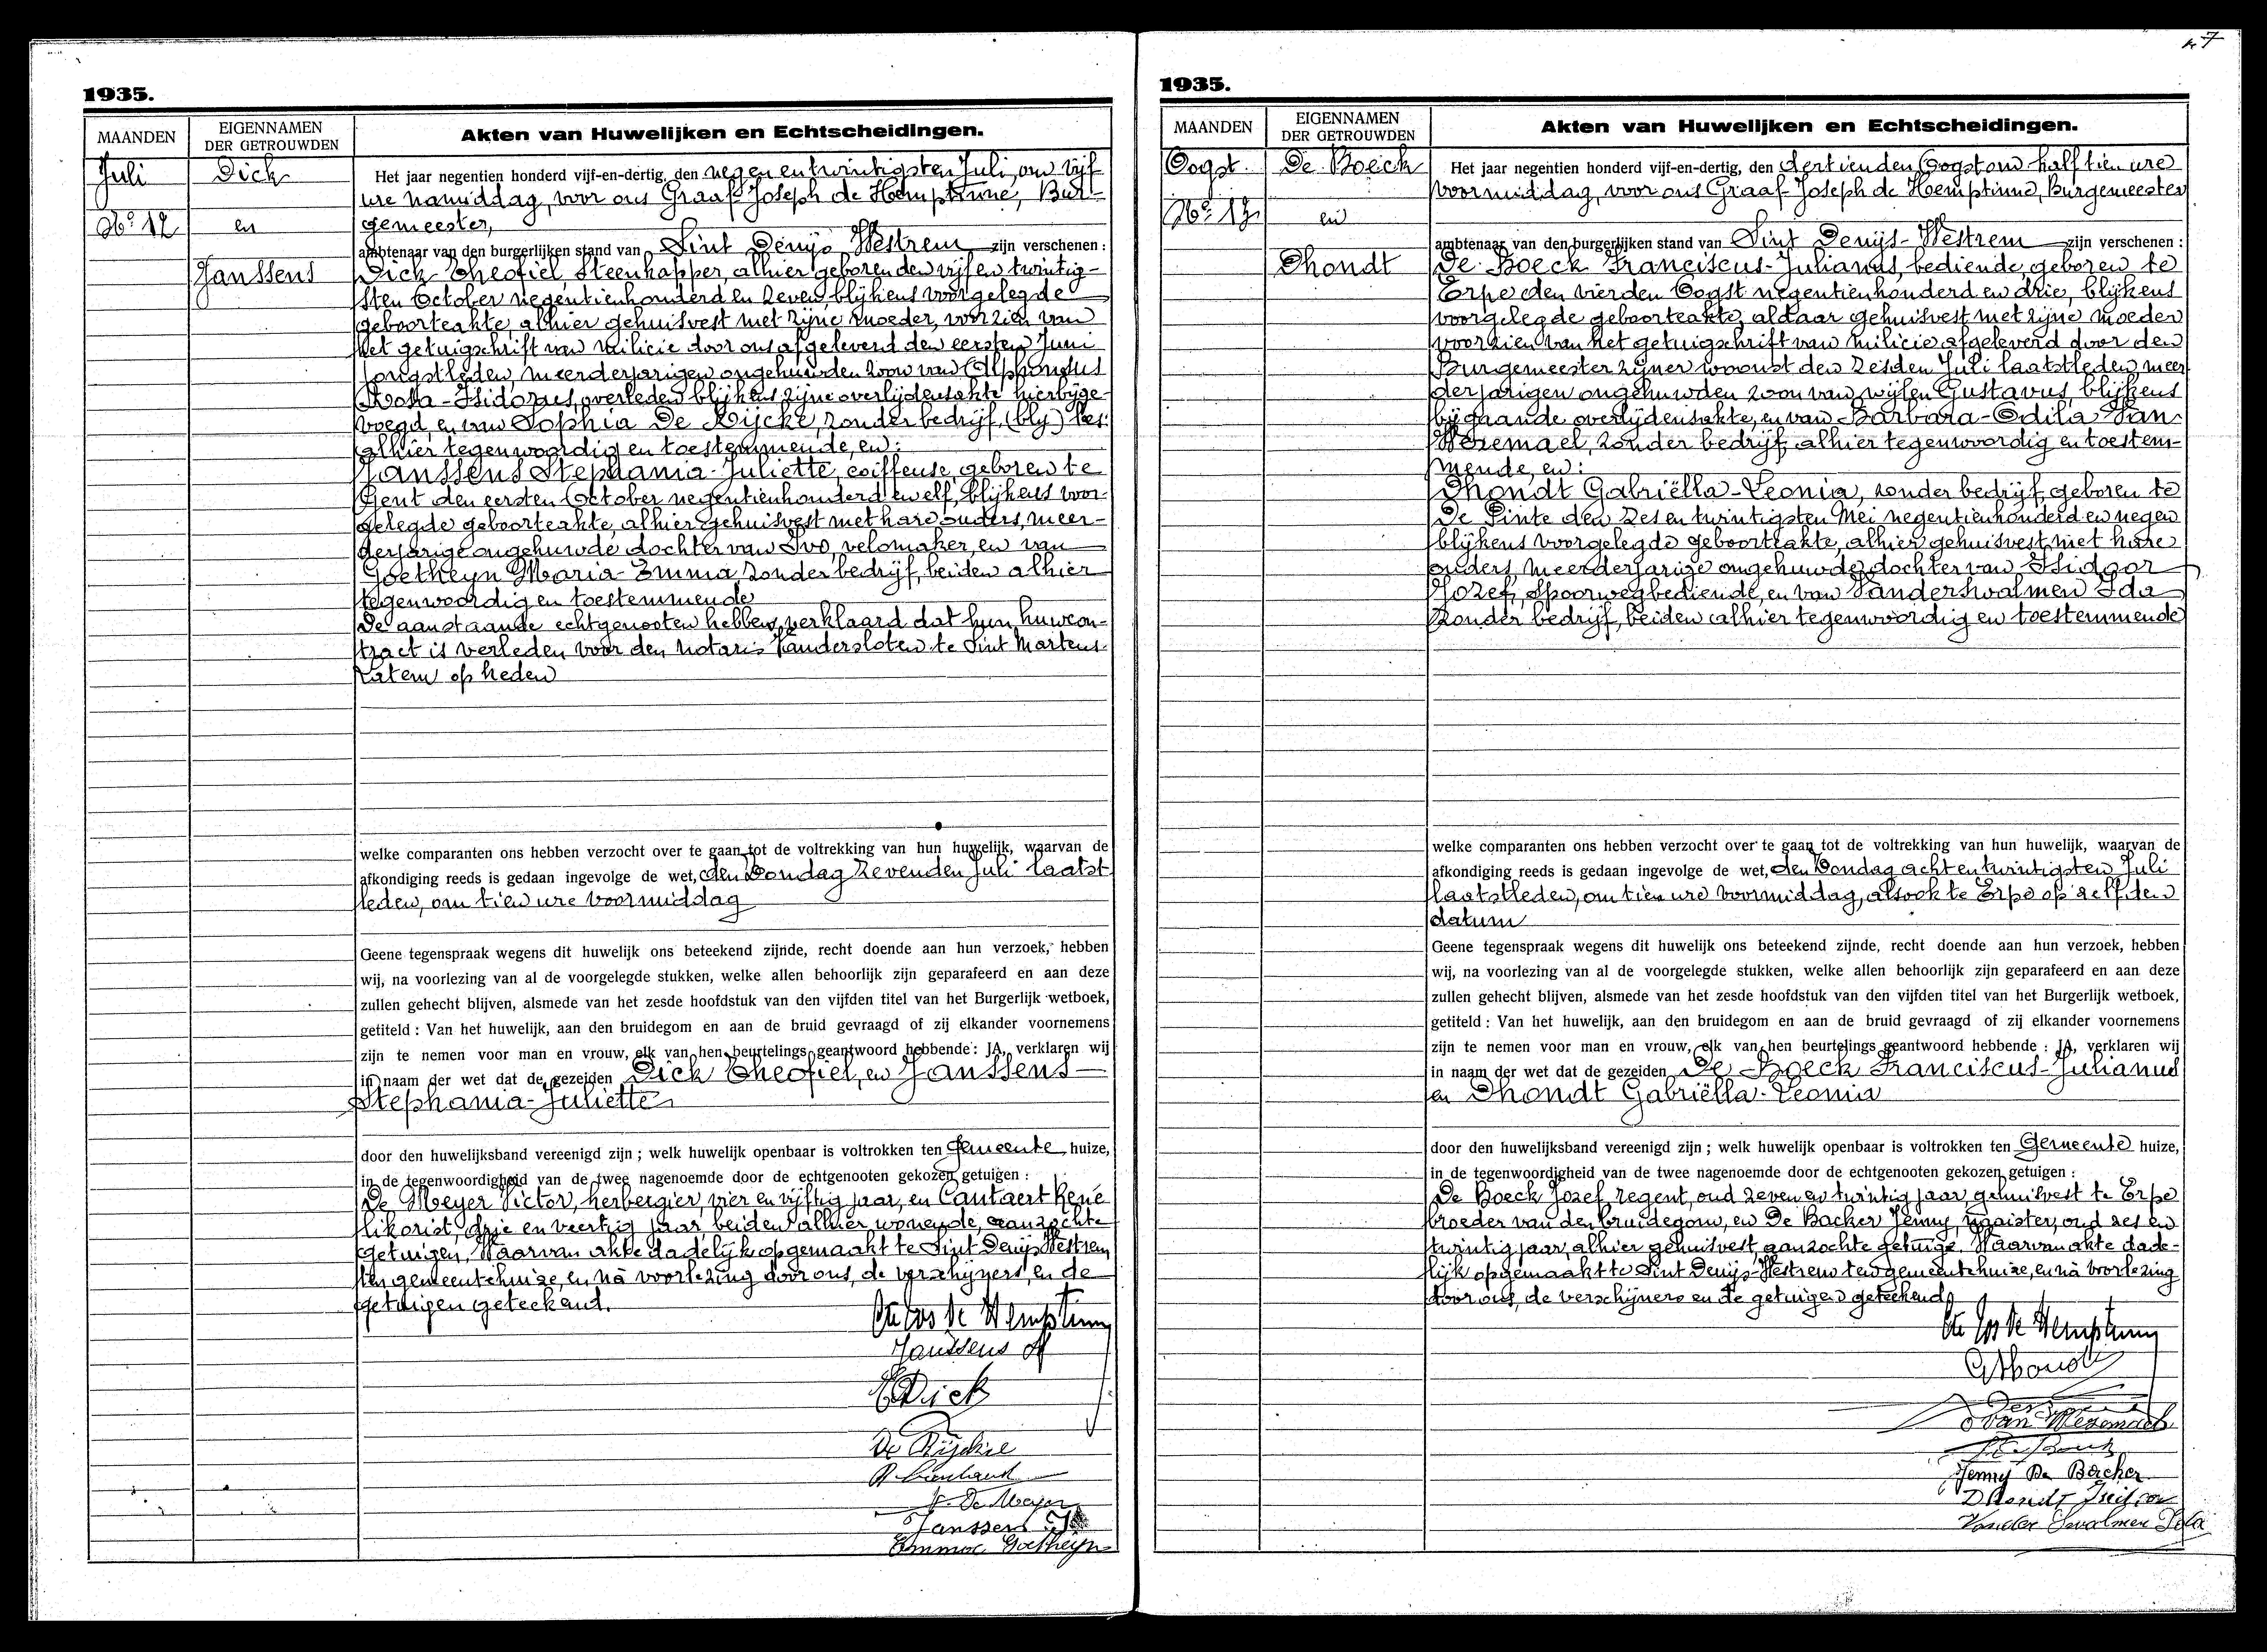 1935.
MAANDEN
EIGENNAMEN
DER GETROUWDEN
Akten van Huwelijken en Echtscheidingen.
Juli
Nº 12
Dick
en
Janssens
Het jaar negentien honderd vijf-en-dertig, den negen en twintigsten Juli, om vijf
ure namiddag, voor ons Graaf Joseph de Hemptinne, Bur-
gemeester,
ambtenaar van den burgerlijken stand van Sint Denijs Westrem zijn verschenen :
Dick Theofiel, Steenkapper, alhier geboren den vijf en twintig-
sten October negentienhonderd en zeven, blijkens voorgelegde
geboorteakte, alhier gehuisvest met zijne moeder, voorzien van
het getuigschrift van milicie door ons afgeleverd den eersten Juni
jongstleden, meerderjarigen ongehuwden zoon van Alphonsus
Isidorus, overleden blijkens zijne overlijdensakte hierbijge-
voegd, en van Sophia De Rijcke, zonder bedrijf, (bly)
alhier tegenwoordig en toestemmende, en :
Janssens Stephania-Juliette, coiffeuse, geboren te
Gent den eersten October negentienhonderd en elf, blijkens voor-
gelegde geboorteakte, alhier gehuisvest met hare ouders, meer-
derjarige ongehuwde dochter van Ivo, velomaker, en van
Goetheyn Maria-Emma, zonder bedrijf, beiden alhier
tegenwoordig en toestemmende
De aanstaande echtgenooten hebben verklaard dat hun huwcon-
tract is verleden voor den notaris Vandersloten te Sint Martens-
Latem op heden
welke comparanten ons hebben verzocht over te gaan tot de voltrekking van hun huwelijk, waarvan de
afkondiging reeds is gedaan ingevolge de wet, den Zondag zevenden Juli laatst
leden, om tien ure voormiddag
Geene tegenspraak wegens dit huwelijk ons beteekend zijnde, recht doende aan hun verzoek, hebben
wij, na voorlezing van al de voorgelegde stukken, welke allen behoorlijk zijn geparafeerd en aan deze
zullen gehecht blijven, alsmede van het zesde hoofdstuk van den vijfden titel van het Burgerlijk wetboek,
getiteld : Van het huwelijk, aan den bruidegom en aan de bruid gevraagd of zij elkander voornemens
zijn te nemen voor man en vrouw, elk van hen beurtelings geantwoord hebbende : JA, verklaren wij
in naam der wet dat de gezeiden Dick Theofiel, en Janssens
Stephania-Juliette
door den huwelijksband vereenigd zijn ; welk huwelijk openbaar is voltrokken ten Gemeente huize,
in de tegenwoordigheid van de twee nagenoemde door de echtgenooten gekozen getuigen :
De Meyer Victor, herbergier, vier en vijftig jaar, en Cantaert René
likorist, drie en veertig jaar, beiden alhier wonende, aanzochte
getuigen. Waarvan akte dadelijk opgemaakt te Sint Denijs Westrem
ten gemeentehuize, en nà voorlezing door ons, de verschijners, en de
getuigen geteekend.
Cte Jos de Hemptinne
Janssens
Dick
De Rijcke
V. De Meyer
Janssens
Emma Goetheyn
7
1935.
MAANDEN
EIGENNAMEN
DER GETROUWDEN
Akten van Huwelijken en Echtscheidingen.
Oogst.
Nº 13
De Boeck
en
Dhondt
Het jaar negentien honderd vijf-en-dertig, den dertienden Oogst om half tien ure
voormiddag, voor ons Graaf Joseph de Hemptinne, Burgemeester
ambtenaar van den burgerlijken stand van Sint Denijs-Westrem zijn verschenen :
De Boeck Franciscus-Julianus, bediende, geboren te
Erpe den vierden Oogst negentienhonderd en drie, blijkens
voorgelegde geboorteakte, aldaar gehuisvest met zijne moeder
voorzien van het getuigschrift van milicie afgeleverd door den
Burgemeester zijner woonst den zesden Juli laatstleden, meer
derjarigen ongehuwden zoon van wijlen Gustavus, blijkens
bijgaande overlijdensakte, en van Barbara-Odila Van
Wezemael, zonder bedrijf, alhier tegenwoordig en toestem-
mende, en :
Dhondt Gabriëlla-Leonia, zonder bedrijf, geboren te
De Pinte den zes en twintigsten Mei negentienhonderd en negen
blijkens voorgelegde geboorteakte, alhier gehuisvest met hare
ouders, meerderjarige ongehuwde dochter van Isidoor
Jozef, spoorwegbediende, en van Vanderswalmen Ida
zonder bedrijf, beiden alhier tegenwoordig en toestemmende
welke comparanten ons hebben verzocht over te gaan tot de voltrekking van hun huwelijk, waarvan de
afkondiging reeds is gedaan ingevolge de wet, den Zondag acht en twintigsten Juli
laatstleden, om tien ure voormiddag, alsook te Erpe op zelfden
datum
Geene tegenspraak wegens dit huwelijk ons beteekend zijnde, recht doende aan hun verzoek, hebben
wij, na voorlezing van al de voorgelegde stukken, welke allen behoorlijk zijn geparafeerd en aan deze
zullen gehecht blijven, alsmede van het zesde hoofdstuk van den vijfden titel van het Burgerlijk wetboek,
getiteld : Van het huwelijk, aan den bruidegom en aan de bruid gevraagd of zij elkander voornemens
zijn te nemen voor man en vrouw, elk van hen beurtelings geantwoord hebbende : JA, verklaren wij
in naam der wet dat de gezeiden De Boeck Franciscus-Julianus
en Dhondt Gabriëlla-Leonia
door den huwelijksband vereenigd zijn ; welk huwelijk openbaar is voltrokken ten Gemeente huize,
in de tegenwoordigheid van de twee nagenoemde door de echtgenooten gekozen getuigen :
De Boeck Jozef, regent, oud zeven en twintig jaar, gehuisvest te Erpe
broeder van den bruidegom, en De Backer Jenny, naaister, oud zes en
twintig jaar, alhier gehuisvest, aanzochte getuige. Waarvan akte dade-
lijk opgemaakt te Sint Denijs-Westrem ten gemeentehuize, en nà voorlezing
door ons, de verschijners en de getuigen geteekend
Cte Jos de Hemptinne
G Dhondt
O Van Wezemael
Jenny De Backer
Vander Swalmen Ida